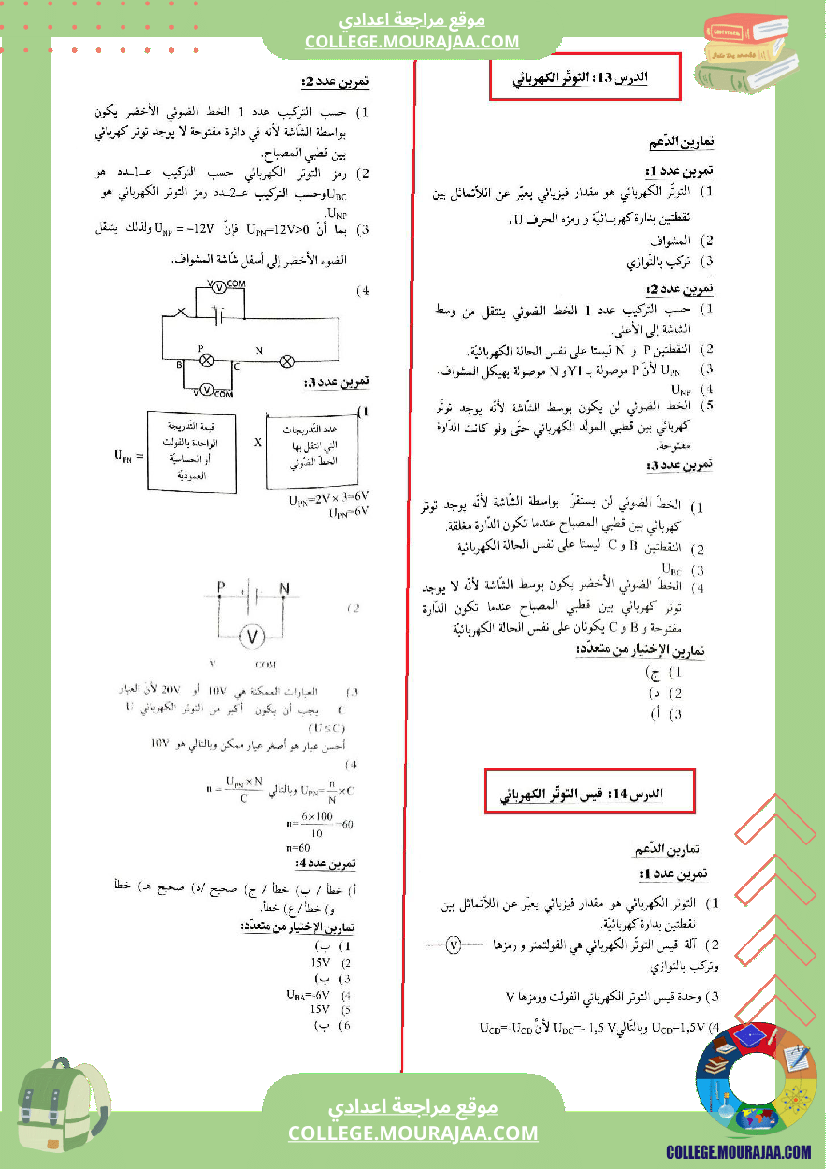 موقع مراجعة اعدادي
COLLEGE.MOURAJAA.COM
الدرس 13: التوتّر الكهربائي
تمارين الدّعم
تمرين عدد 1:
1) التوتّر الكهربائي هو مقدار فيزيائي يعبّر عن اللاّتماثل بين
نقطتين بدارة كهربائيّة و رمزه الحرف U.
2) المشواف
3) تركب بالتّوازي
تمرين عدد 2:
1) حسب التركيب عدد 1 الخط الضوئي ينتقل من وسط
الشاشة إلى الأعلى.
2) النقطتين P و N ليستا على نفس الحالة الكهربائيّة.
3) UPN لأنّ P موصولة بـ Y1 و N موصولة بهيكل المشواف.
4) UNP
5) الخط الضوئي لن يكون بوسط الشّاشة لأنّه يوجد توتّر
كهربائي بين قطبي المولّد الكهربائي حتّى ولو كانت الدّارة
مفتوحة.
تمرين عدد 3:
1) الخطّ الضوئي لن يستقرّ بواسطة الشّاشة لأنّه يوجد توتر
كهربائي بين قطبي المصباح عندما تكون الدّارة مغلقة.
2) النقطتين B و C ليستا على نفس الحالة الكهربائية
3) UBC
4) الخطّ الضوئي الأخضر يكون بوسط الشّاشة لأنّه لا يوجد
توتر كهربائي بين قطبي المصباح عندما تكون الدّارة
مفتوحة و B و C يكونان على نفس الحالة الكهربائيّة
تمارين الإختيار من متعدّد:
1) ج)
2) د)
3) أ)
الدرس 14: قيس التوتّر الكهربائي
تمارين الدّعم
تمرين عدد 1:
1) التوتر الكهربائي هو مقدار فيزيائي يعبّر عن اللاّتماثل بين
نقطتين بدارة كهربائيّة.
2) آلة قيس التوتّر الكهربائي هي الفولتمتر و رمزها V
وتركب بالتوازي
3) وحدة قيس التوتر الكهربائي الفولت ورمزها V
4) UCD=1,5V وبالتّالي UDC=- 1,5 V لأنّ UCD=-UCD
تمرين عدد 2:
1) حسب التركيب عدد 1 الخط الضوئي الأخضر يكون
بواسطة الشّاشة لأنه في دائرة مفتوحة لا يوجد توتر كهربائي
بين قطبي المصباح.
2) رمز التوتر الكهربائي حسب التركيب عـ1ـدد هو
UBC وحسب التركيب عـ2ـدد رمز التوتر الكهربائي هو
UNP.
3) بما أنّ UPN=12V>0 فإنّ UNP = –12V ولذلك ينتقل
الضوء الأخضر إلى أسفل شّاشة المشواف.
4)
V V COM
P N
B C
V V COM
تمرين عدد 3:
1)
UPN =
قيمة التّدريجة
الواحدة بالفولت
أو الحساسيّة
العموديّة
X
عدد التّدريجات
التي انتقل بها
الخطّ الضّوئي
UPN=2V×3=6V
UPN=6V
2)
P N
V
V COM
3) العيارات الممكنة هي 10V أو 20V لأنّ العيار
C يجب أن يكون أكبر من التوتر الكهربائي U
(U≤C)
أحسن عيار هو أصغر عيار ممكن وبالتالي هو 10V
4)
UPN=n/N×C وبالتالي n = UPN×N/C
n=6×100/10=60
n=60
تمرين عدد 4:
أ) خطأ / ب) خطأ / ج) صحيح /د) صحيح هـ) خطأ
و) خطأ/ ع) خطأ.
تمارين الإختيار من متعدّد:
1) ب)
2) 15V
3) ب)
4) UBA=-6V
5) 15V
6) ب)
موقع مراجعة اعدادي
COLLEGE.MOURAJAA.COM
COLLEGE.MOURAJAA.COM